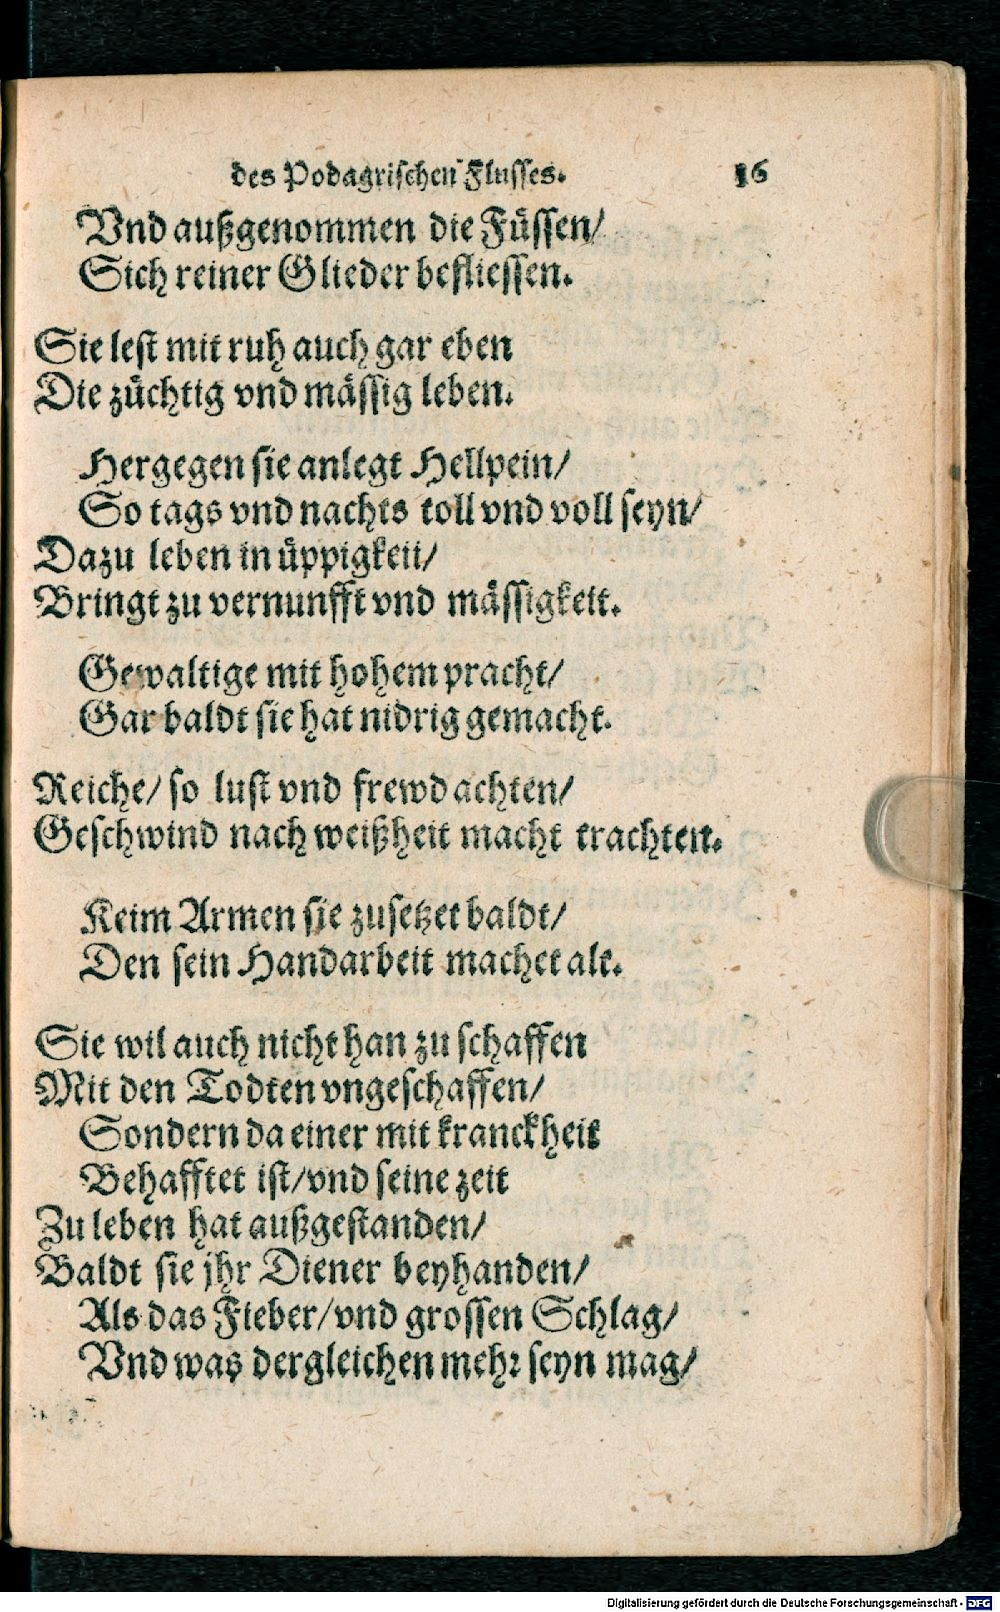 des Podagrischen Flusses. 16
Vnd außgenommen die Füssen/
Sich reiner Glieder befliessen.
Sie lest mit ruh auch gar eben
Die züchtig vnd mässig leben.
Hergegen sie anlegt Hellpein/
So tags vnd nachts toll vnd voll seyn/
Dazu leben in üppigkeit/
Bringt zu vernunfft vnd mässigkeit.
Gewaltige mit hohem pracht/
Gar baldt sie hat nidrig gemacht.
Reiche/ so lust vnd frewd achten/
Geschwind nach weißheit macht trachten.
Keim Armen sie zusetzet baldt/
Den sein Handarbeit machet alt.
Sie wil auch nicht han zu schaffen
Mit den Todten vngeschaffen/
Sondern da einer mit kranckheit
Behafftet ist/ vnd seine zeit
Zu leben hat außgestanden/
Baldt sie jhr Diener beyhanden/
Als das Fieber/ vnd grossen Schlag/
Vnd was dergleichen mehr seyn mag/
Digitalisierung gefördert durch die Deutsche Forschungsgemeinschaft - DFG